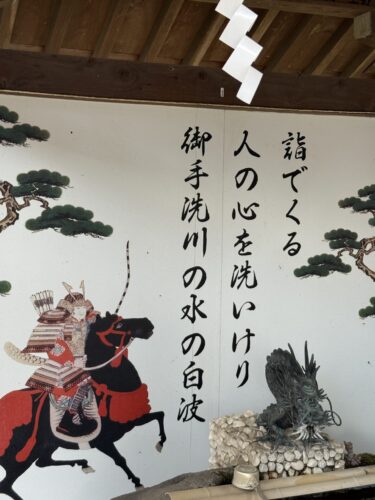 詣でくる
人の心を洗いけり
御手洗川の水の白波